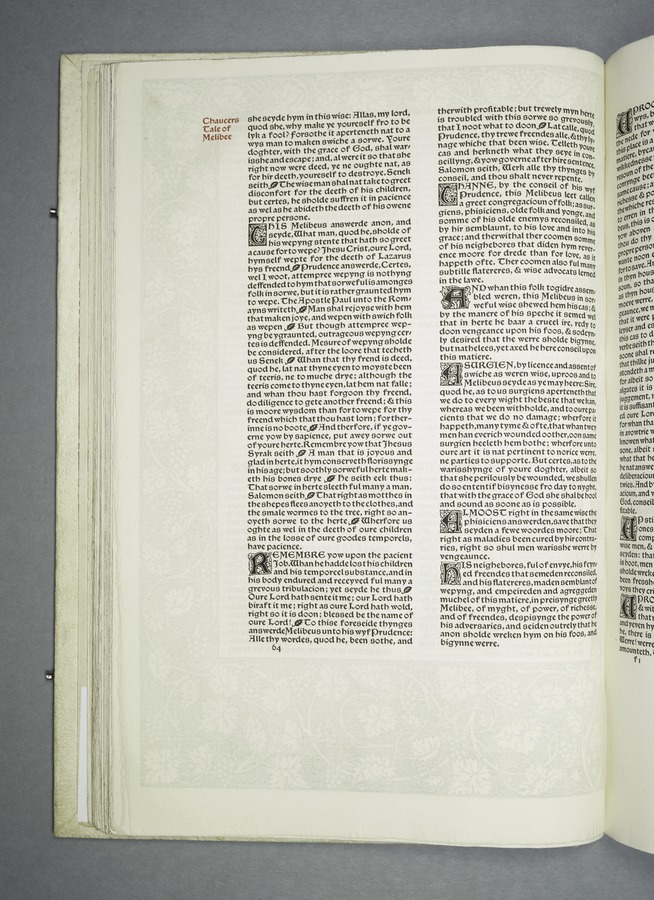 Chaucers
Tale of
Melibee
she seyde hym in this wise: Allas, my lord,
quod she, why make ye youreself fro to be
lyk a fool? Forsothe it aperteneth nat to a
wys man to maken swiche a sorwe. Youre
doghter, with the grace of God, shal war-
isshe and escape; and, al were it so that she
right now were deed, ye ne oughte nat, as
for hir deeth, youreself to destroye. Senek
seith, The wise man shal nat take to greet
disconfort for the deeth of his children,
but certes, he sholde suffren it in pacience
as wel as he abideth the deeth of his owene
propre persone.
THIS Melibeus answerde anon, and
seyde, What man, quod he, sholde of
his wepyng stente that hath so greet
a cause for to wepe? Jhesu Crist, oure Lord,
hymself wepte for the deeth of Lazarus
hys freend. Prudence answerde, Certes,
wel I woot, attempree wepyng is nothyng
deffended to hym that sorweful is amonges
folk in sorwe, but it is rather graunted hym
to wepe. The Apostle Paul unto the Rom-
ayns writeth, Man shal rejoyse with hem
that maken joye, and wepen with swich folk
as wepen. But though attempree wep-
yng be ygraunted, outrageous wepyng cer-
tes is deffended. Mesure of wepyng sholde
be considered, after the loore that techeth
us Senek. Whan that thy frend is deed,
quod he, lat nat thyne eyen to moyste been
of teeris, ne to muche drye; although the
teeris come to thyne eyen, lat hem nat falle;
and whan thou hast forgoon thy freend,
do diligence to gete another freend; & this
is moore wysdom than for to wepe for thy
freend which that thou hast lorn; for ther-
inne is no boote. And therfore, if ye gov-
erne yow by sapience, put awey sorwe out
of youre herte. Remembre yow that Jhesus
Syrak seith, A man that is joyous and
glad in herte, it hym conserveth florissynge
in his age; but soothly sorweful herte mak-
eth his bones drye. He seith eek thus:
That sorwe in herte sleeth ful many a man.
Salomon seith, That right as motthes in
the shepes flees anoyeth to the clothes, and
the smale wormes to the tree, right so an-
oyeth sorwe to the herte. Wherfore us
oghte as wel in the deeth of oure children
as in the losse of oure goodes temporels,
have pacience.
REMEMBRE yow upon the pacient
Job. Whan he hadde lost his children
and his temporel substance, and in
his body endured and receyved ful many a
grevous tribulacion; yet seyde he thus,
Oure Lord hath sente it me; our Lord hath
biraft it me; right as oure Lord hath wold,
right so it is doon; blessed be the name of
oure Lord! To thise foreseide thynges
answerde Melibeus unto his wyf Prudence:
Alle thy wordes, quod he, been sothe, and
64
therwith profitable; but trewely myn herte
is troubled with this sorwe so grevously,
that I noot what to doon. Lat calle, quod
Prudence, thy trewe freendes alle, & thy ly-
nage whiche that been wise. Telleth youre
cas and herkneth what they seye in con-
seillyng, & yow governe after hire sentence.
Salomon seith, Werk alle thy thynges by
conseil, and thou shalt never repente.
THANNE, by the conseil of his wyf
Prudence, this Melibeus leet callen
a greet congregacioun of folk; as sur-
giens, phisiciens, olde folk and yonge, and
somme of his olde enemys reconsiled, as
by hir semblaunt, to his love and into his
grace; and therwithal ther coomen somme
of his neighebores that diden hym rever-
ence moore for drede than for love, as it
happeth ofte. Ther coomen also ful many
subtille flatereres, & wise advocats lerned
in the lawe.
AND whan this folk togidre assem-
bled weren, this Melibeus in sor-
weful wise shewed hem his cas; &
by the manere of his speche it semed wel
that in herte he baar a crueel ire, redy to
doon vengeance upon his foos, & sodeyn-
ly desired that the werre sholde bigynne,
but nathelees, yet axed he here conseil upon
this matiere.
A SURGIEN, by licence and assent of
swiche as weren wise, up roos and to
Melibeus seyde as ye may heere: Sire,
quod he, as to us surgiens aperteneth that
we do to every wight the beste that we kan,
whereas we been withholde, and to oure pa-
cients that we do no damage; wherfore it
happeth, many tyme & ofte, that whan twey
men han everich wounded oother, oon same
surgien heeleth hem bothe; wherfore unto
oure art it is nat pertinent to norice werre,
ne parties to supporte. But certes, as to the
warisshynge of youre doghter, albeit so
that she perilously be wounded, we shullen
do so ententif bisynesse fro day to nyght,
that with the grace of God she shal be hool
and sound as soone as is possible.
ALMOOST right in the same wise the
phisiciens answerden, save that they
seyden a fewe woordes moore; That
right as maladies been cured by hir contra-
ries, right so shul men warisshe werre by
vengeaunce.
HIS neighebores, ful of envye, his feyn-
ed freendes that semeden reconsiled,
and his flatereres, maden semblant of
wepyng, and empeireden and agreggeden
muchel of this matiere, in preisynge greetly
Melibee, of myght, of power, of richesse,
and of freendes, despisynge the power of
his adversaries, and seiden outrely that he
anon sholde wreken hym on his foos, and
bigynne werre.
f 1